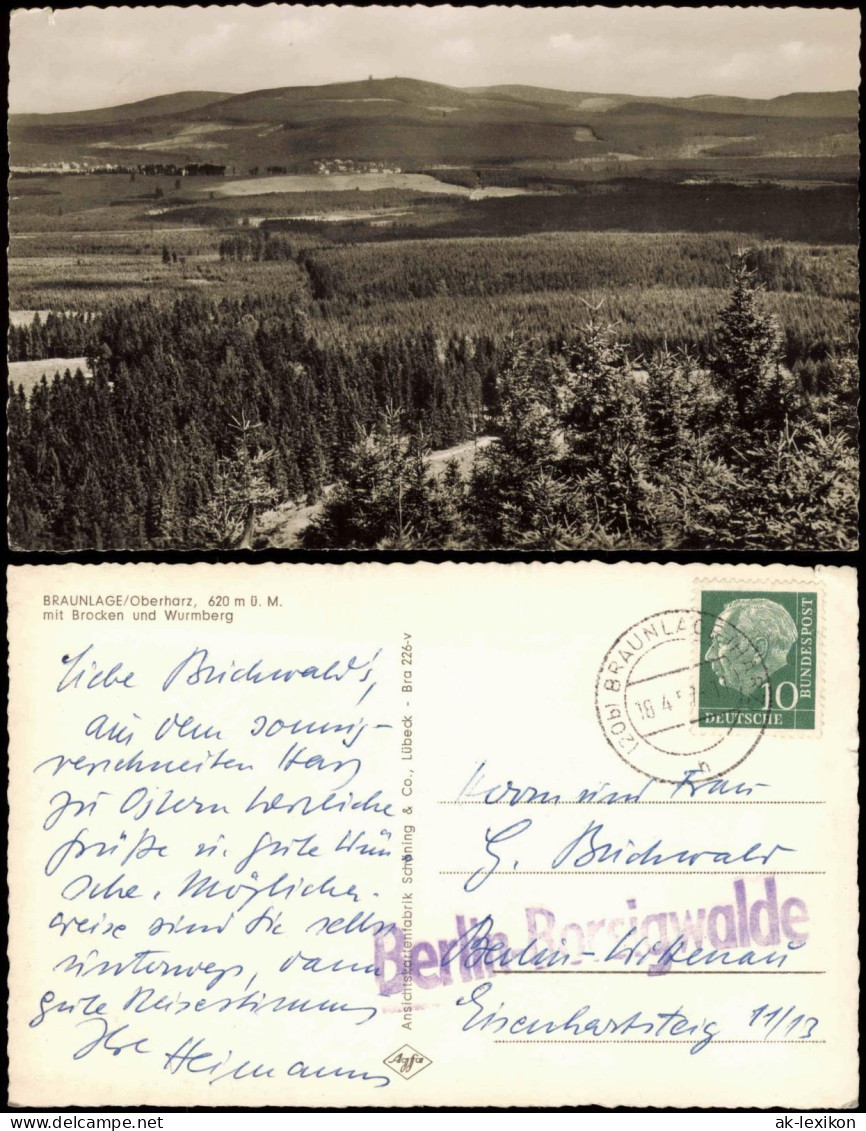 BRAUNLAGE/Oberharz, 620 m Ü. M.
mit Brocken und Wurmberg
Liebe Buchwald's,
aus dem sonnig-
verschneiten Harz
zu Ostern herzliche
Grüße u. gute Wün
sche. Möglicher-
weise sind Sie selbst
unterwegs, dann
gute Reisestimmung
Ihre Heimanns
Ansichtskartenfabrik Schöning & Co., Lübeck - Bra 226-v
Agfa
(20b) BRAUNLAGE
18.4.5
u
DEUTSCHE
BUNDESPOST
10
Herrn und Frau
G. Buchwald
Berlin-Wittenau
Eisenhartsteig 11/13
Berlin Borsigwalde
www.ansichtskarten-lexikon.de
ak-lexikon